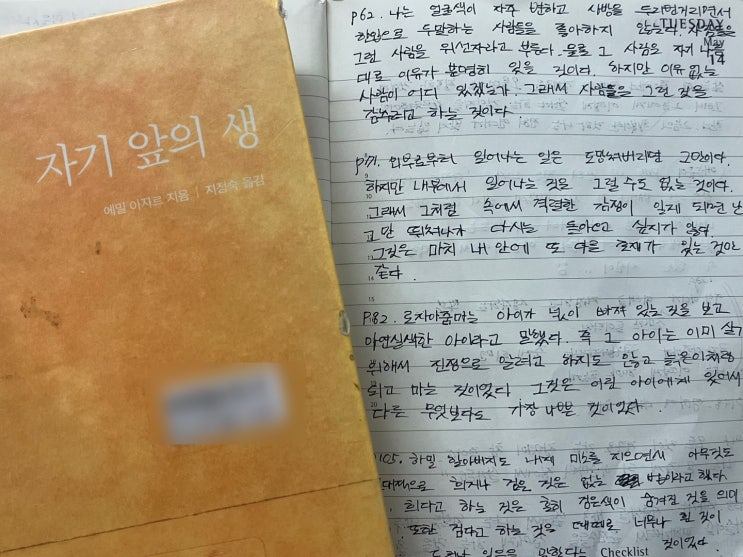 자기 앞의 생
에밀 아자르 지음 | 지정숙 옮김
TUESDAY
May
14
p62. 나는 얼굴색이 자주 변하고 사방을 두리번거리면서
한입으로 두말하는 사람들을 좋아하지 않는다. 사람들은
그런 사람을 위선자라고 부른다. 물론 그 사람은 자기 나름
대로 이유가 분명히 있을 것이다. 하지만 이유 없는
사람이 어디 있겠는가. 그래서 사람들은 그런 것을
감수라고 하는 것이다
p71. 외부로부터 일어나는 일은 도망쳐버리면 그만이다.
하지만 내부에서 일어나는 것은 그럴 수도 없는 것이다.
그래서 그처럼 속에서 격렬한 감정이 일게 되면 난
그만 뛰쳐나가 다시는 돌아오고 싶지가 않다.
그것은 마치 내 안에 또 다른 존재가 있는 것만
같다.
p.82. 로자아줌마는 아이가 넋이 빠져 있는 것을 보고
아연실색한 아이라고 말했다. 즉 그 아이는 이미 살기
위해서 진정으로 알려고 하지도 않고 늙은이처럼
되고 마는 것이었다 그것은 어린 아이에게 있어서
다른 무엇보다도 가장 나쁜 것이었다.
105. 하밀 할아버지도 내게 미소를 지으면서 아무것도
대적으로 희거나 검은 것은 없는 법이라고 했다.
희다고 하는 것은 흔히 검은색이 숨겨진 것을 의미
또한 검다고 하는 것은 때때로 너무나 흰 것이
것이었다
Checklist